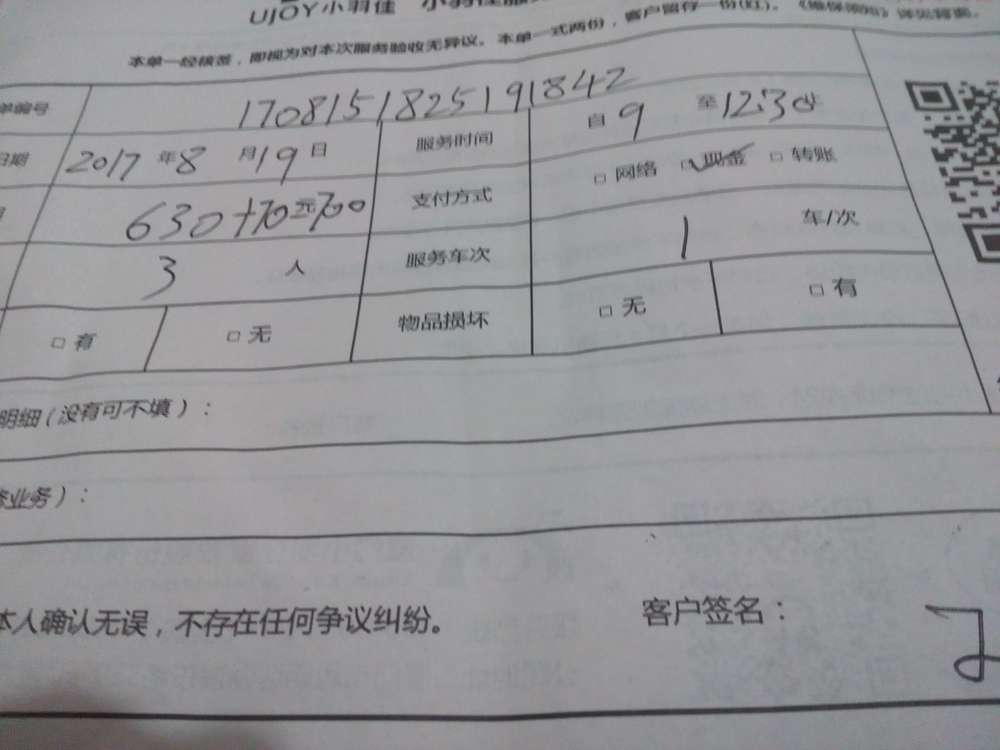 UJOY小羽佳 小羽佳服
本单一经核签，即视为对本次服务验收无异议。本单一式两份，客户留存一份(红)。
单编号 1708151825191842
日期 2017年8月19日 服务时间 自9至12:30
630+70元=700 支付方式 □网络 ☑现金 □转账
3人 服务车次 1车/次
□有 □无 物品损坏 □无 □有
明细(没有可不填)：
业务)：
本人确认无误，不存在任何争议纠纷。 客户签名：